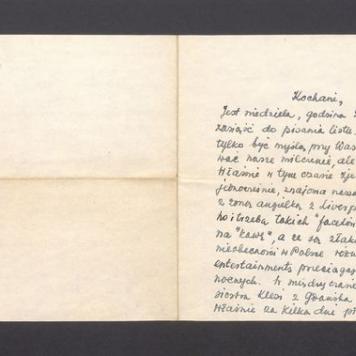 Kochani,
Jest niedziela, godzina
zasiąść do pisania listu.
tylko być myślą przy Was
wać nasze milczenie, ale
Właśnie w tym czasie zje
jednocześnie, znajoma nasza
z żoną angielką z Liverp
no i trzeba takich "facetów
na "kawę", a ce są złak
nieobecności w Polsce rozm
entertainments przeciąga
nocnych. W międzyczasie
siostra z Gdańska
właśnie na kilka dni